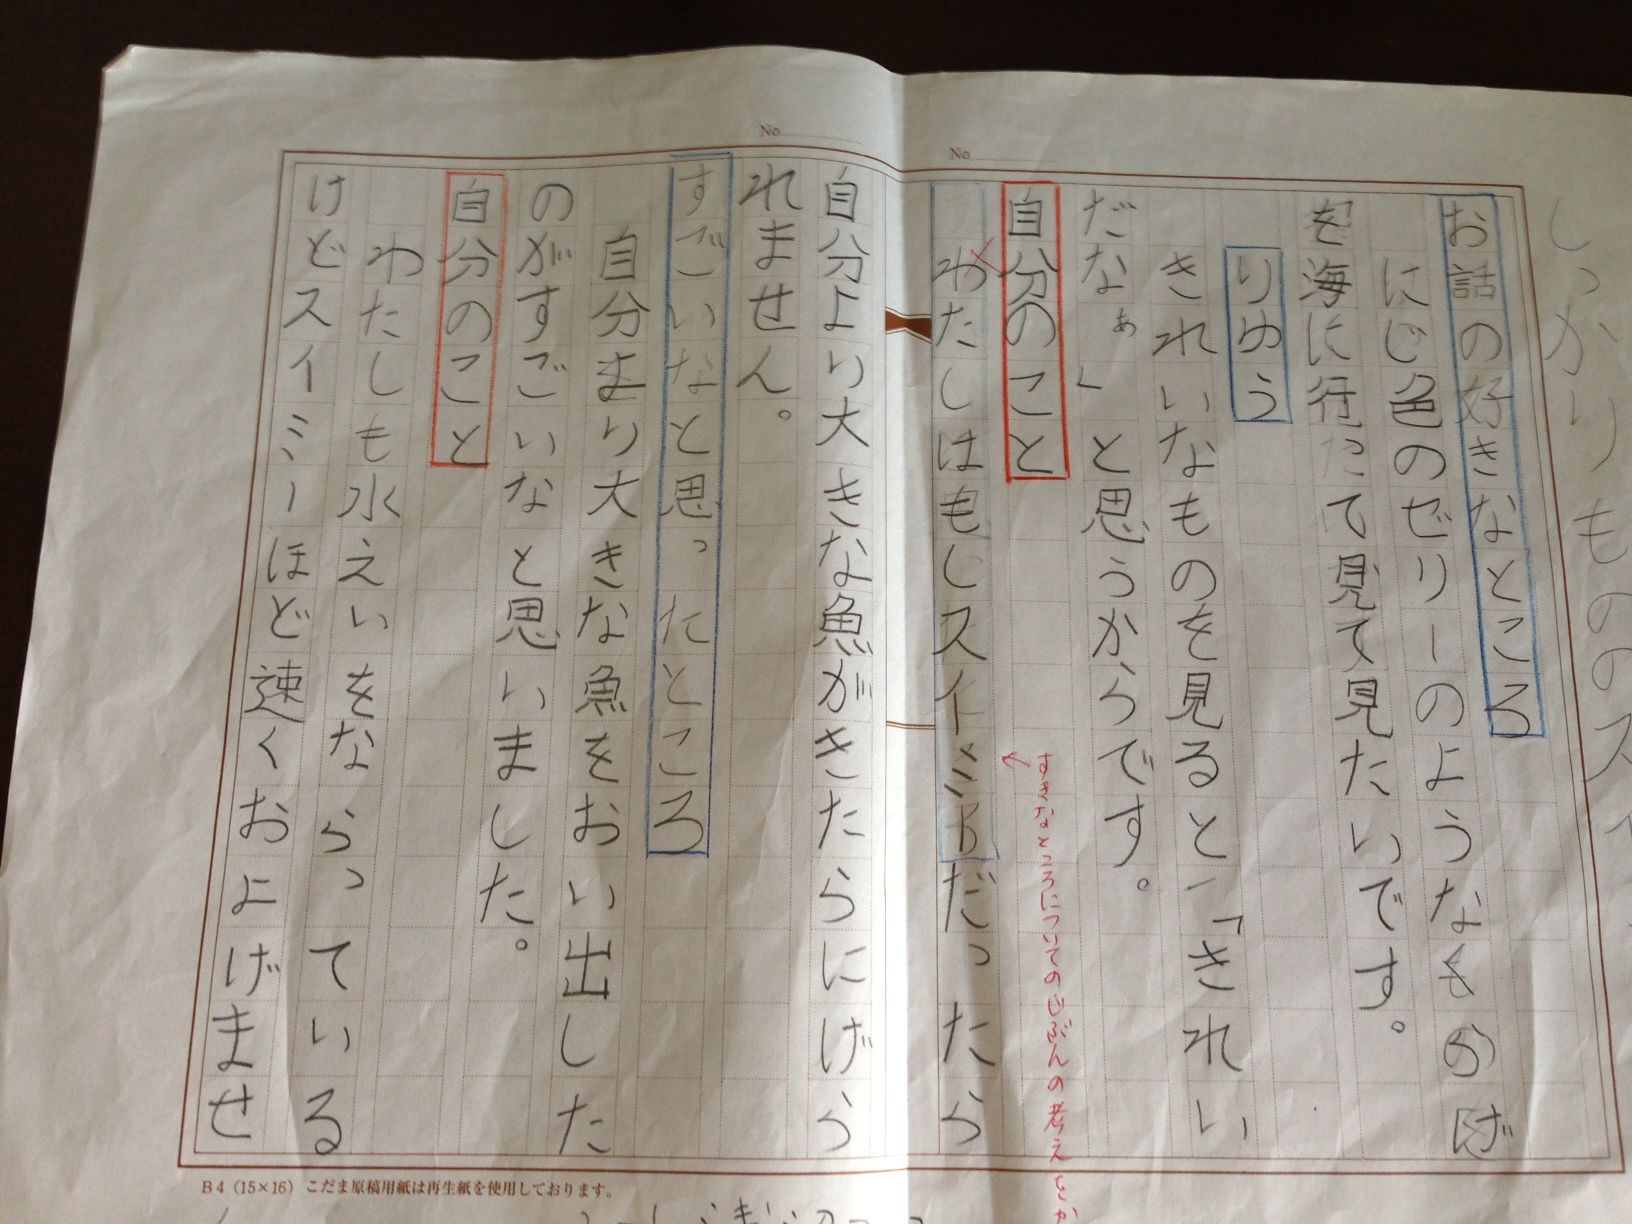 しっかりもののスイ
お話の好きなところ
にじ色のゼリーのようなもの
を海に行たて見て見たいです。
りゆう
きれいなものを見ると、「きれい
だなぁ」と思うからです。
自分のこと
すきなところについてのじぶんの考えをか
わたしはもしスイミーだったら
自分より大きな魚がきたらにげら
れません。
すごいなと思ったところ
自分まり大きな魚をおい出した
のがすごいなと思いました。
自分のこと
わたしも水えいをならっている
けどスイミーほど速くおよげませ
No.
No.
B4(15×16) こだま原稿用紙は再生紙を使用しております。